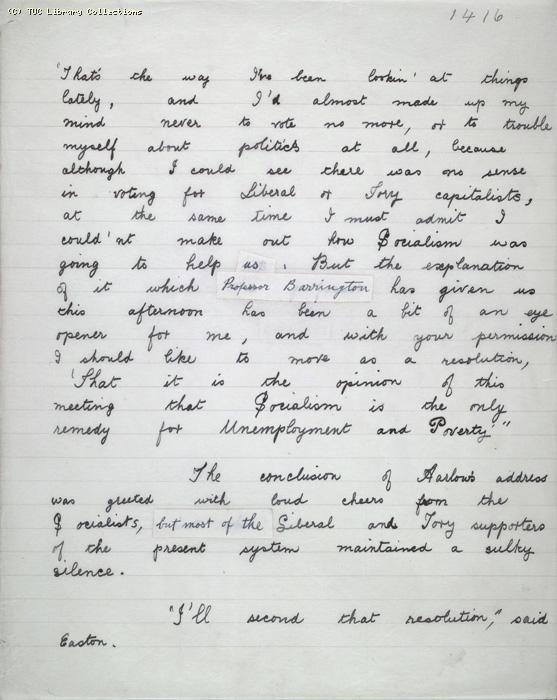 (C) TUC Library Collections
1416
'That's the way I've been lookin' at things
lately, and I'd almost made up my
mind never to vote no more, or to trouble
myself about politics at all, because
although I could see there was no sense
in voting for Liberal or Tory capitalists,
at the same time I must admit I
could'nt make out how Socialism was
going to help us. But the explanation
of it which Professor Barrington has given us
this afternoon has been a bit of an eye
opener for me, and with your permission
I should like to move as a resolution,
'That it is the opinion of this
meeting that Socialism is the only
remedy for Unemployment and Poverty"
The conclusion of Harlow's address
was greeted with loud cheers from the
Socialists, but most of the Liberal and Tory supporters
of the present system maintained a sulky
silence.
"I'll second that resolution," said
Easton.